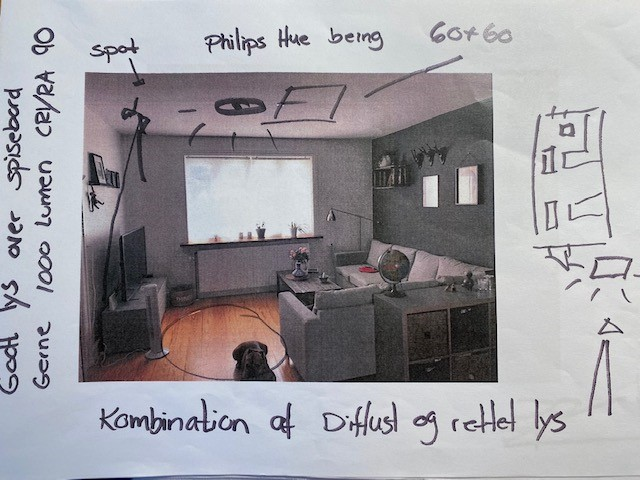 spot
Philips Hue being
60x60
Godt lys over spisebord
Gerne 1000 lumen CRI/RA 90
Kombination af Diffust og rettet lys